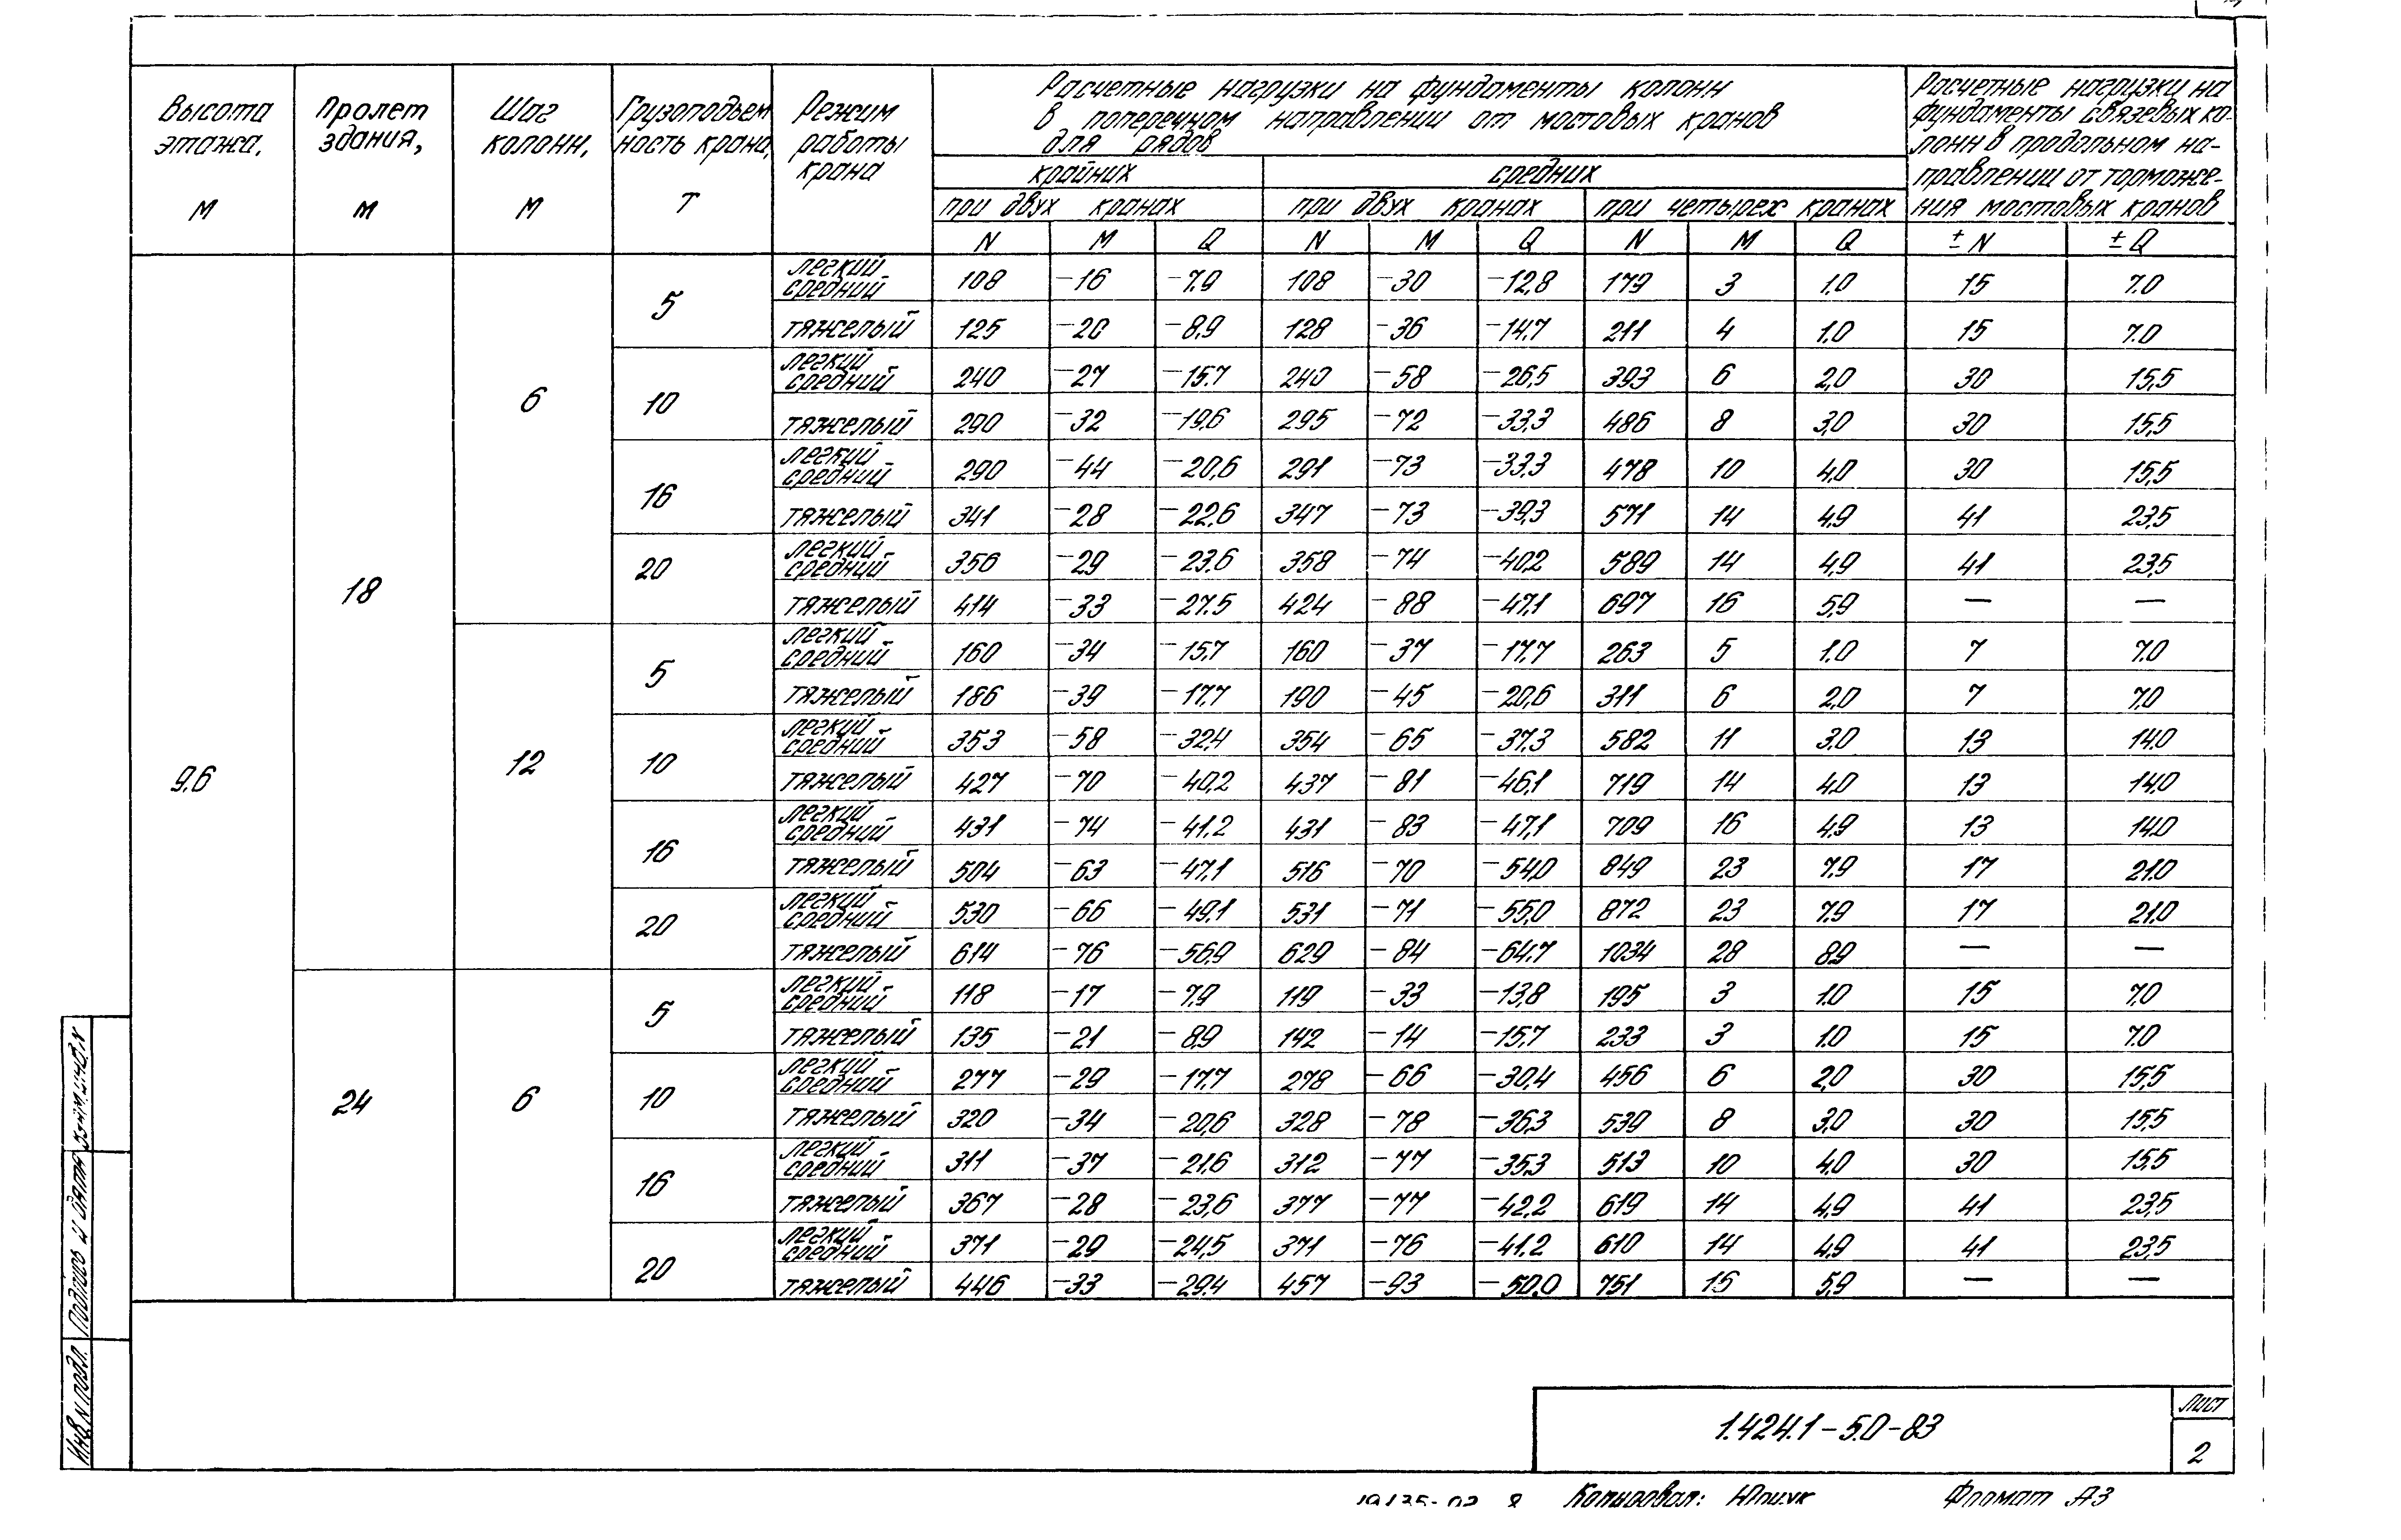 Высота этажа, м
Пролет здания, м
Шаг колонн, м
Грузоподъемность крана, т
Режим работы крана
Расчетные нагрузки на фундаменты колонн
в поперечном направлении от мостовых кранов
для рядов
крайних средних
при двух кранах при двух кранах при четырех кранах
Расчетные нагрузки на
фундаменты связевых ко-
лонн в продольном на-
правлении от торможе-
ния мостовых кранов
N M Q N M Q N M Q ± N ± Q
9,6
18
6
5
легкий средний 108 -16 -7.9 108 -30 -12,8 179 3 1.0 15 7.0
тяжелый 125 -20 -8.9 128 -36 -14,7 211 4 1.0 15 7.0
10
легкий средний 240 -27 -15.7 240 -58 -26,5 393 6 2,0 30 15,5
тяжелый 290 -32 -19,6 295 -72 -33,3 486 8 3,0 30 15,5
16
легкий средний 290 -44 -20,6 291 -73 -33,3 478 10 4,0 30 15,5
тяжелый 341 -28 -22,6 347 -73 -39,3 571 14 4,9 41 23,5
20
легкий средний 356 -29 -23.6 358 -74 -40,2 589 14 4,9 41 23,5
тяжелый 414 -33 -27.5 424 -88 -47,1 697 16 5,9 — —
12
5
легкий средний 160 -34 -15,7 160 -37 -17,7 263 5 1.0 7 7.0
тяжелый 186 -39 -17,7 190 -45 -20,6 311 6 2,0 7 7,0
10
легкий средний 353 -58 -32,4 354 -65 -37,3 582 11 3.0 13 14,0
тяжелый 427 -70 -40,2 437 -81 -46,1 719 14 4,0 13 14,0
16
легкий средний 431 -74 -41,2 431 -83 -47,1 709 16 4,9 13 14,0
тяжелый 504 -63 -47,1 516 -70 -54,0 849 23 7,9 17 21.0
20
легкий средний 530 -66 -49,1 531 -71 -55,0 872 23 7,9 17 21.0
тяжелый 614 -76 -56,9 629 -84 -64,7 1034 28 8,9 — —
24
6
5
легкий средний 118 -17 -7,9 119 -33 -13,8 195 3 1.0 15 7,0
тяжелый 135 -21 -8,9 142 -14 -15,7 233 3 1.0 15 7.0
10
легкий средний 277 -29 -17,7 278 -66 -30,4 456 6 2,0 30 15,5
тяжелый 320 -34 -20,6 328 -78 -36,3 539 8 3,0 30 15,5
16
легкий средний 311 -37 -21,6 312 -77 -35,3 513 10 4,0 30 15,5
тяжелый 367 -28 -23,6 377 -77 -42,2 619 14 4,9 41 23,5
20
легкий средний 371 -29 -24,5 371 -76 -41,2 610 14 4,9 41 23,5
тяжелый 446 -33 -29,4 457 -93 -50,0 751 15 5,9 — —
Взам. инв. N
Подпись и дата
Инв. N подл.
1.424.1-5.0-83
Лист
2
Копировал:
Формат А3